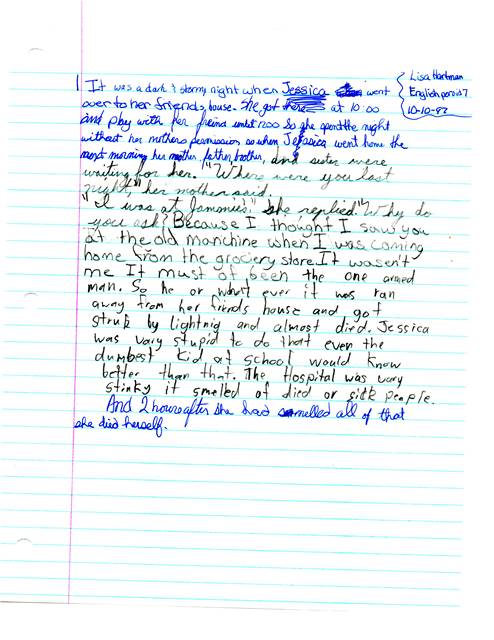 Lisa Hartman
English period 7
10-10-97
1 It was a dark & stormy night when Jessica went
over to her friends house. She got there at 10:00
and play with her freind untill 1200 So she spend the night
without her mothers permission so when Jessica went home the
next morning her mother, father, brother, and sister were
waiting for her. "Where were you last
night," her mother said.
"I was at Jammie's." she replied "Why do
you ask? Because I thought I saw you
at the old manchine when I was coming
home from the grocery store. It wasen't
me It must of been the one armed
man. So he or what ever it was ran
away from her fiends house and got
struk by lightnig and almost died. Jessica
was vary stupid to do that even the
dumbest kid at school would know
better than that. The Hospital was vary
stinky it smeled of died or sick people.
And 2 hours after she had smelled all of that
she died herself.